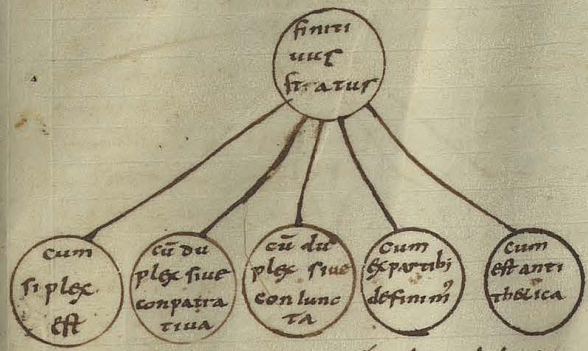 finiti
uus
status
cum
siplex
est
cū du
plex siue
conpara
tiua
cū du
plex siue
coniunc
ta
cum
ex partibꝰ
definimꝰ
cum
est anti
thetica